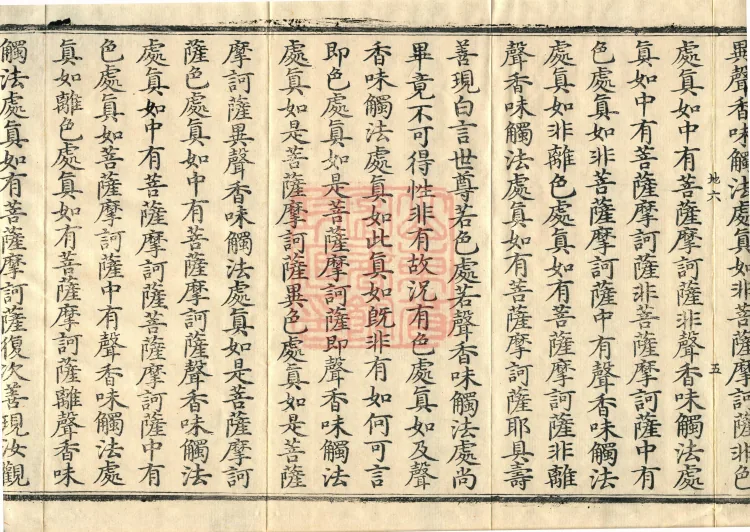 異聲香味觸法處眞如是菩薩摩訶薩非色
處眞如中有菩薩摩訶薩非聲香味觸法處
眞如中有菩薩摩訶薩非菩薩摩訶薩中有
色處眞如非菩薩摩訶薩中有聲香味觸法
處眞如非離色處眞如有菩薩摩訶薩非離
聲香味觸法處眞如有菩薩摩訶薩耶具壽
善現白言世尊若色處若聲香味觸法處尚
畢竟不可得性非有故況有色處眞如及聲
香味觸法處眞如此眞如旣非有如何可言
即色處眞如是菩薩摩訶薩即聲香味觸法
處眞如是菩薩摩訶薩異色處眞如是菩薩
摩訶薩異聲香味觸法處眞如是菩薩摩訶
薩色處眞如中有菩薩摩訶薩聲香味觸法
處眞如中有菩薩摩訶薩菩薩摩訶薩中有
色處眞如菩薩摩訶薩中有聲香味觸法處
眞如離色處眞如有菩薩摩訶薩離聲香味
觸法處眞如有菩薩摩訶薩復次善現汝觀
地六
五